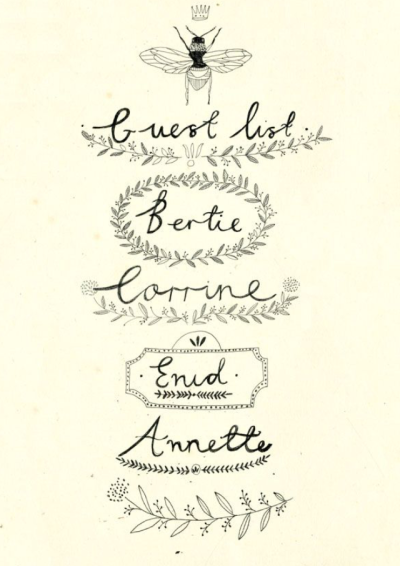 Guest list
Bertie
Corrine
Enid
Annette